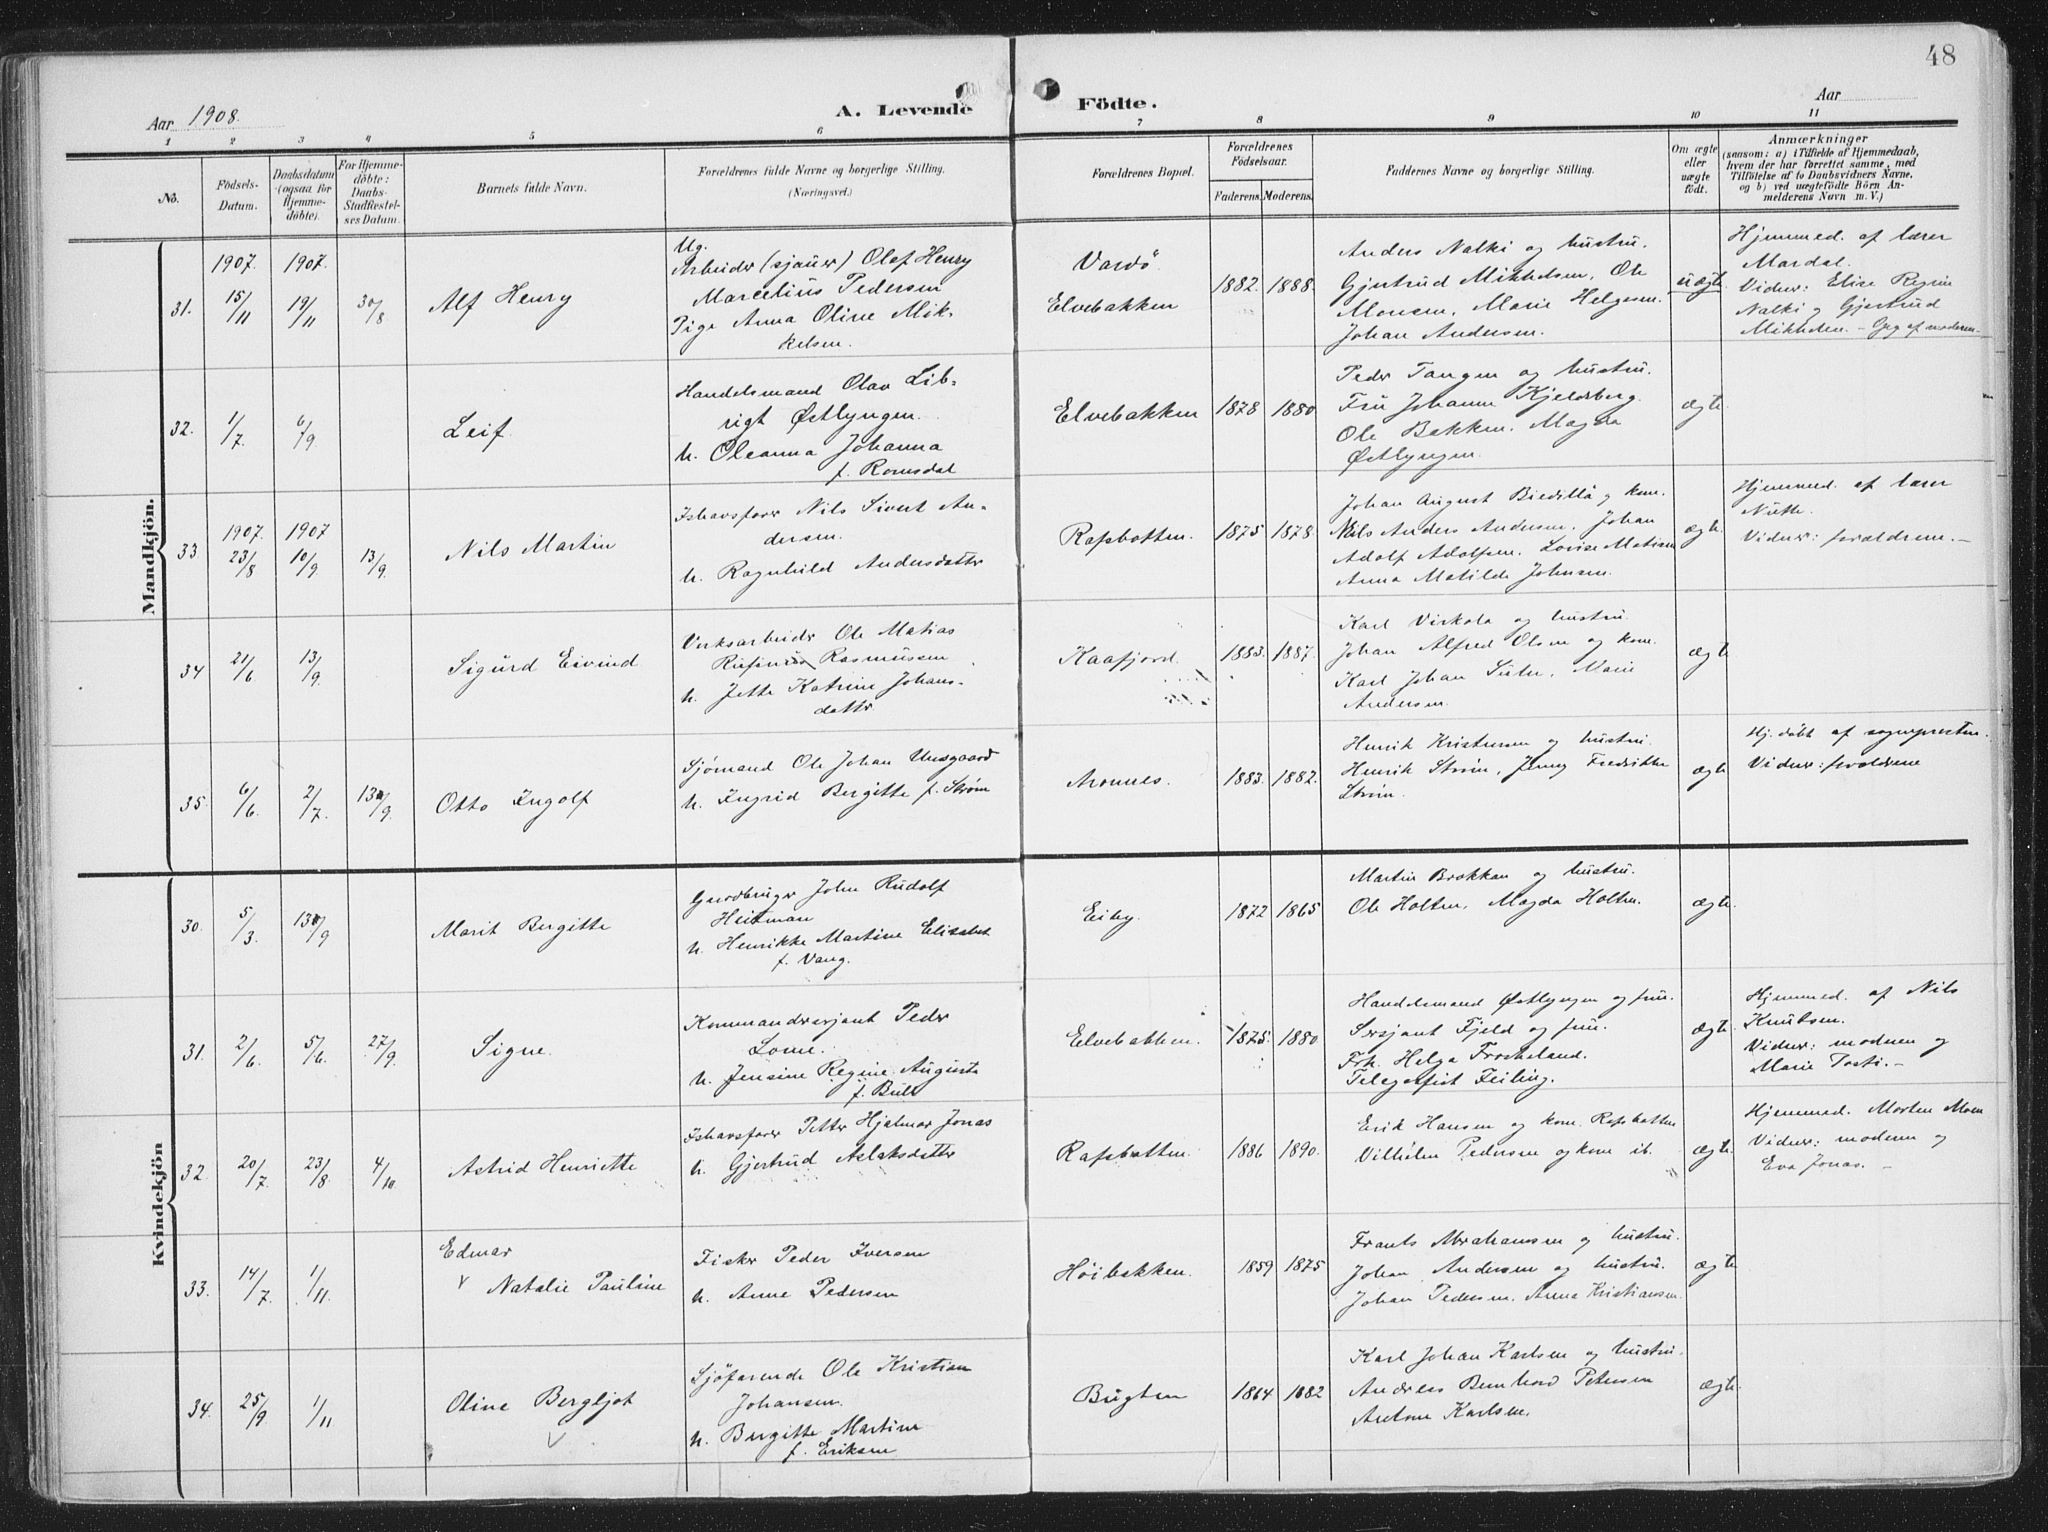 48
Aar 1908.
A. Levende
Födte.
Aar
1 2 3 4 5 6 7 8 9 10 11
No.
Födsels-
Datum.
Daabsdatum
(ogsaa for
Hjemme-
döbte).
For Hjemme-
döbte:
Daabs-
Stadfæstel-
ses Datum.
Barnets fulde Navn.
Forældrenes fulde Navne og borgerlige Stilling.
(Næringsvei.)
Forældrenes Bopæl.
Forældrenes
Födselsaar.
Faderens. Moderens.
Faddernes Navne og borgerlige Stilling.
Om ægte
eller
uægte
födt.
Anmærkninger
(saasom: a) i Tilfælde af Hjemmedaab,
hvem der har forrettet samme, med
Tilföielse af to Daabsvidners Navne,
og b) ved uægtefödte Börn An-
melderens Navn m. V.)
Mandkjön.
31.
1907.
15/11
1907.
19/11
30/8
Alf Henry
Ug.
Arbeider (sjauer) Olaf Henry
Marcelius Pedersen
Pige Anna Oline Mik-
kelsen.
Vardö
Elvebakken
1882. 1888.
Anders Nalki og hustru.
Gjertrud Mikkelsen, Ole
Monsen, Marie Helgesen.
Johan Andersen.
uægte
Hjemmed. af lærer
Mardal.
Vidner: Elise Regine
Nalki og Gjertrud
Mikkelsen. – Opg af moderen
32.
1/7.
6/9.
Leif.
Handelsmand Olav Lib-
rigt Østlyngen.
h. Oleanna Johanna
f. Romsdal
Elvebakken
1878 1880
Peder Tangen og hustru.
Fru Johanna Kjeldsberg.
Ole Bakken. Magda
Østlyngen.
ægte
33
1907.
23/8
1907
10/9.
13/9.
Nils Martin
Ishavsfarer Nils Sivert An-
dersen.
h. Ragnhild Andersdatter
Rafsbotten.
1875 1878.
Johan August Biedilla og kone.
Nils Anders Andersen. Johan
Adolf Adolfsen. Lovise Matisen
Anna Matilde Johnsen.
ægte
Hjemmed. af lærer
Vidner: forældrene. –
34
21/6.
13/9.
Sigurd Eivind
Verksarbeider Ole Matias
Rufinus Rasmussen
h. Jette Katrine Johans-
datter
Kaafjord.
1883. 1887.
Karl Virkola og hustru.
Johan Alfred Olsen og kone.
Karl Johan Suter, Marie
Andersen.
ægte
35.
6/6.
2/7.
13/9.
Otto Ingolf
Sjømand Ole Johan Unsgaard
h. Ingrid Bergitte f. Strøm
Aronnes.
1883. 1882.
Henrik Kristensen og hustru.
Henrik Strøm, Jenny Fredrikke
Strøm.
ægte
Hj. døbt af sognepresten.
Vidner: forældrene
Kvindekjön
30.
5/3.
13/9
Marit Bergitte
Gaardbruger John Rudolf
Heitman
h. Henrikke Martine Elisabet
f. Vang.
Eiby.
1872 1865
Martin Brokkan og hustru.
Ole Holten, Magda Holten.
ægte.
31.
2/6.
5/6.
27/9.
Signe.
Kommandersersjant Peder
Lome.
h. Jensine Regine Augusta
f. Bull
Elvebakken.
1875. 1880
Handelsmand Østlyngen og frue.
Sersjant Fjeld og frue.
Frk. Helga Frokeland.
Telegrafist Feiling.
ægte
Hjemmed. af Nils
Knutsen.
Vidner: moderen og
Marie Tosti. –
32.
20/7.
23/8
4/10
Astrid Henriette
Ishavsfarer Petter Hjalmar Jonas
h. Gjertrud Aslaksdatter
Rafsbotten.
1886 1890.
Erik Hansen og kone. Rafsbotten
Vilhelm Pedersen og kone ib.
ægte
Hjemmed. Morten Moen
Vidner: moderen og
Eva Jonas. –
33.
14/7.
1/11.
Edmar
Natalie Pauline
Fisker Peder Iversen
h. Anne Pedersen
Höibakken.
1859 1875
Frants Abrahamsen og hustru.
Johan Andersen og hustru.
Johan Pedersen. Anna Kristiansen.
ægte
34.
25/9.
1/11
Oline Bergljot
Sjöfarende Ole Kristian
Johansen.
h. Bergitte Martine
f. Eriksen
Bugten
1864 1882
Karl Johan Karlsen og hustru.
Andreas Bernhard Petersen
Antone Karlsen.
ægte.